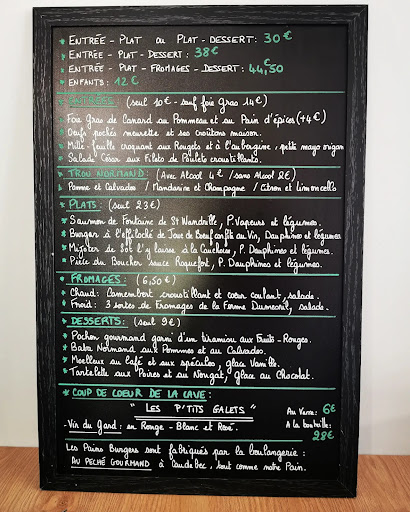 * Entrée - Plat ou Plat - Dessert: 30€
* Entrée - Plat - Dessert: 38€
* Entrée - Plat - Fromages - Dessert: 44,€50
* Enfants: 12€
* Entrées: (seul 10€ - sauf foie Gras 14€)
* Foie Gras de Canard au Pommeau et au Pain d'épices (+4€)
* Oeufs pochés meurette et ses croûtons maison.
* Mille-feuille croquant aux Rougets et à l'aubergine, petite mayo origan
* Salade César aux Filets de Poulets croustillants.
* Trou Normand: (Avec Alcool 4€ / sans Alcool 2€)
Pomme et Calvados / Mandarine et Champagne / Citron et limoncello
* Plats: (seul 23€)
* Saumon de Fontaine de St Wandrille, P. Vapeurs et légumes.
* Burgers à l'effiloché de Joue de Boeuf confit au Vin, Dauphines et légumes
* de à la Cauchoise, P. Dauphines et légumes.
* Pièce du Boucher sauce Roquefort, P. Dauphines et légumes.
* Fromages: (6,50€)
* Chaud: Camembert croustillant et coeur coulant, salade.
* Froid: 3 sortes de fromages de la Ferme salade.
* Desserts: (seul 9€)
* Pochon gourmand garni d'un tiramisu aux Fruits-Rouges.
* Baba Normand aux Pommes et au Calvados.
* Moelleux au Café et aux spéculos, glace Vanille.
* Tartelette aux Poires et au Nougat, Glace au Chocolat.
* Coup de coeur de la cave:
" Les P'tits Galets " Au Verre: 6€
- Vin du Gard: en Rouge - Blanc et Rosé. A la bouteille: 28€
Les Pains Burgers sont fabriqués par la boulangerie:
Au Péché Gourmand à Caudebec, tout comme notre Pain.